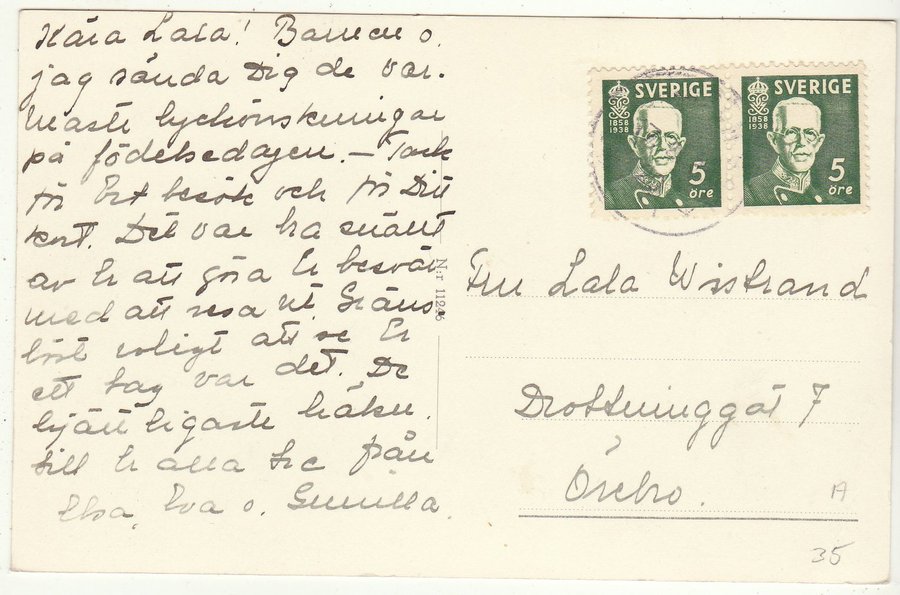 Kära Lala! Barnen o.
jag sända Dig de var-
maste lyckönskningar
på födelsedagen. – Tack
för Ert besök och för Ditt
kort. Det var bra snällt
av Er att göra Er besvär
med att resa ut. Gräns-
löst roligt att se Er
ett tag var det. De
hjärtligaste häls.
till Er alla tre från
Elsa, Eva o. Gunilla.
SVERIGE
1858
1938
5
öre
SVERIGE
1858
1938
5
öre
N:r 11246
Fru Lala Wistrand
Drottninggat 7
Örebro.
A
35